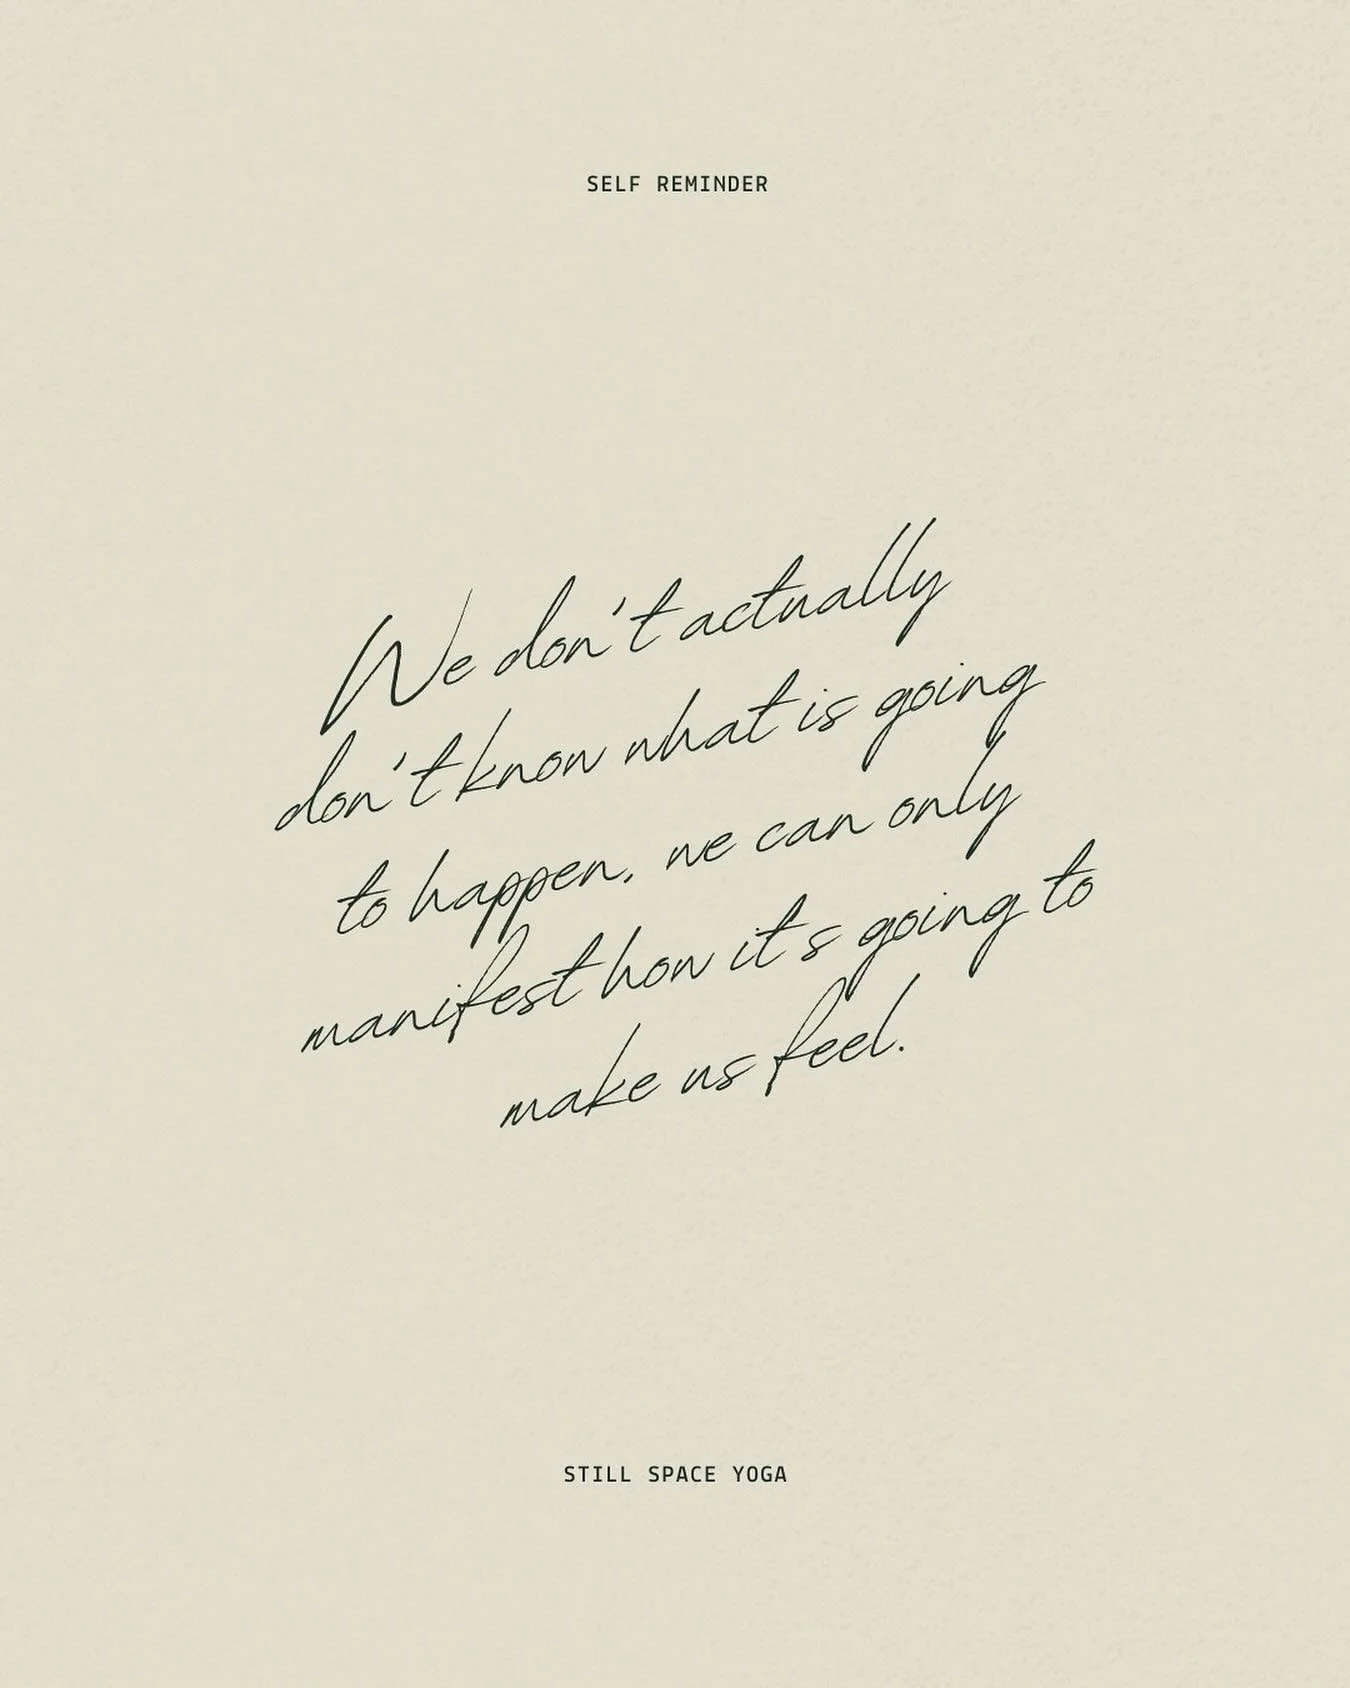 SELF REMINDER
We don't actually
don't know what is going
to happen, we can only
manifest how it's going to
make us feel.
STILL SPACE YOGA